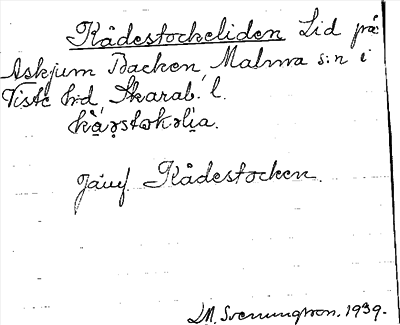 Kådestockeliden Lid på
Askjum Backen, Malma s:n i
Viste hd, Skarab. l.
Jämf Kådestocken.
LM. Svenungsson. 1939.